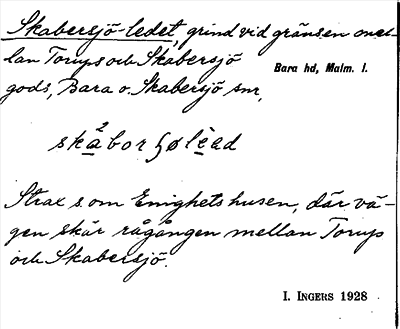 Skabersjö-ledet, grind vid gränsen mel-
lan Torups och Skabersjö
Bara hd, Malm. l.
gods, Bara o. Skabersjö snr,
Strax s om Enighetshusen, där vä-
gen skär rågången mellan Torups
och Skabersjö.
I. INGERS 1928